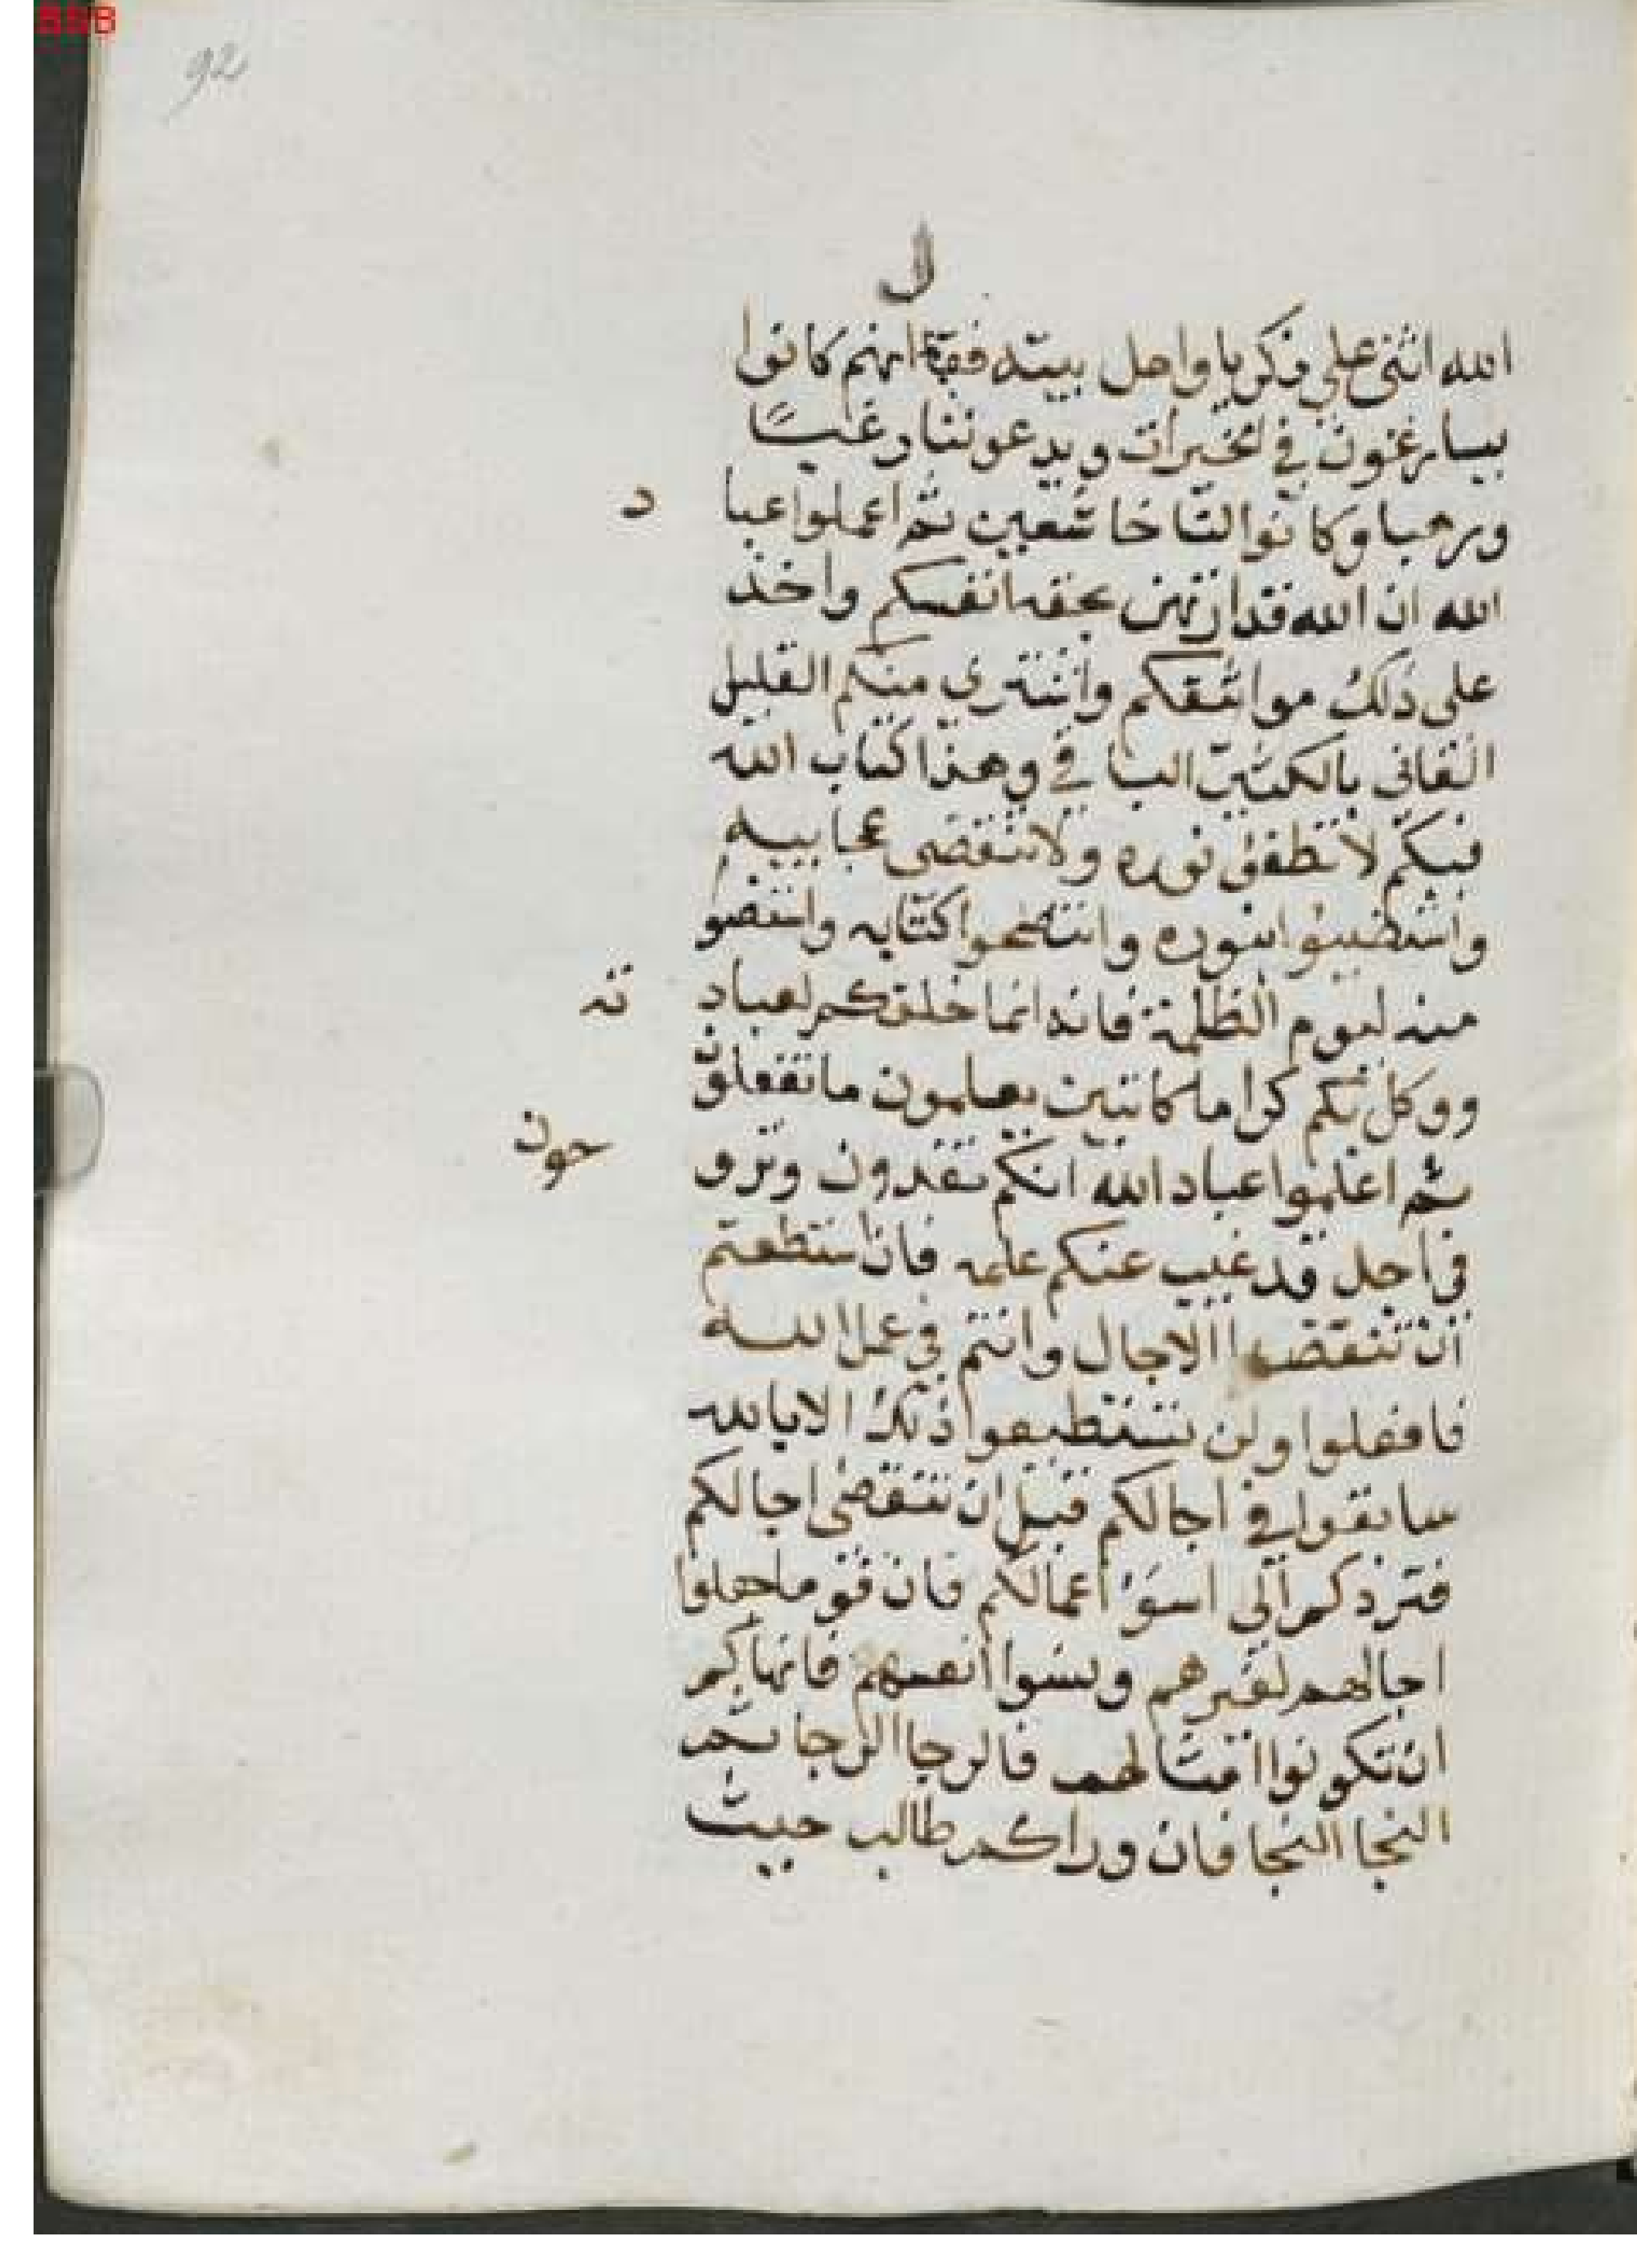 92
ال
الله اثنى على زكريا واهل بيته فقا انهم كانوا
يسارعون في الخيرات ويدعوننا رغبا
ورهبا وكانوا لنا خاشعين ثم اعملوا عبا د
الله ان الله قد ارتهن بحقه انفسكم واخذ
على ذلك مواثقكم واشترى منكم القليل
الفانى بالكثير الباقي وهذا كتاب الله
فيكم لا تطفى نوره ولا تنقضى عجايبه
واستضيئوا بنوره وانتصحوا كتابه واستضو
منه ليوم الظلمة فانه انما خلقكم لعباد ته
ووكل بكم كراما كاتبين يعلمون ما تفعلون
ثم اعلموا عباد الله انكم تغدون وترو حون
في اجل قد غيب عنكم علمه فان استطعتم
ان تنقضى الاجال وانتم في عمل الله
فافعلوا ولن تستطيعوا ذلك الا بالله
سابقوا في اجالكم قبل ان تنقضى اجالكم
فتردكم الى اسوء اعمالكم فان قوما جعلوا
اجالهم لغيرهم ونسوا انفسهم فانهاكم
ان تكونوا امثالهم فالرجا الرجا ثم
النجا النجا فان وراكم طالب حيث